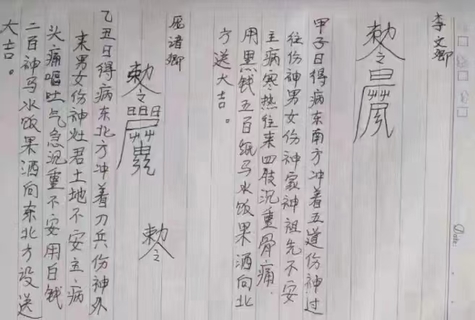 李文卿
敕令
甲子日得病东南方冲着五道伤神过
往伤神男女伤神家神祖先不安
主病寒热往来四肢沉重骨痛
用黑钱五百纸马水饭果酒向北
方送大吉。
庞渚卿
敕令
敕令
乙丑日得病东北方冲着刀兵伤神外
来男女伤神灶君土地不安主病
头痛呕吐气急沉重不安用白钱
二百神马水饭果酒向东北方没送
大吉。
Date